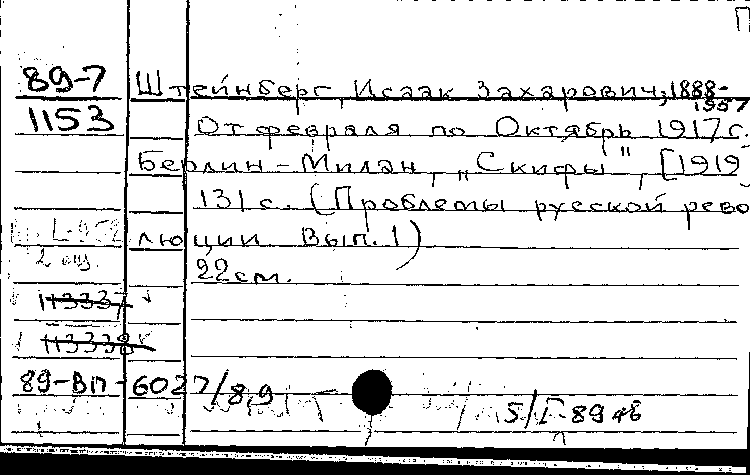 П
89-7 Штейнберг, Исаак Захарович, 1888-
1957
1153 От февраля по Октябрь 1917 г.
Берлин-Милан, „Скифы", [1919
131 с. (Проблемы русской рево
люции Вып. 1)
2 экз. 22 см.
113337
113338
89-ВП-6027/8,9
5/I-89